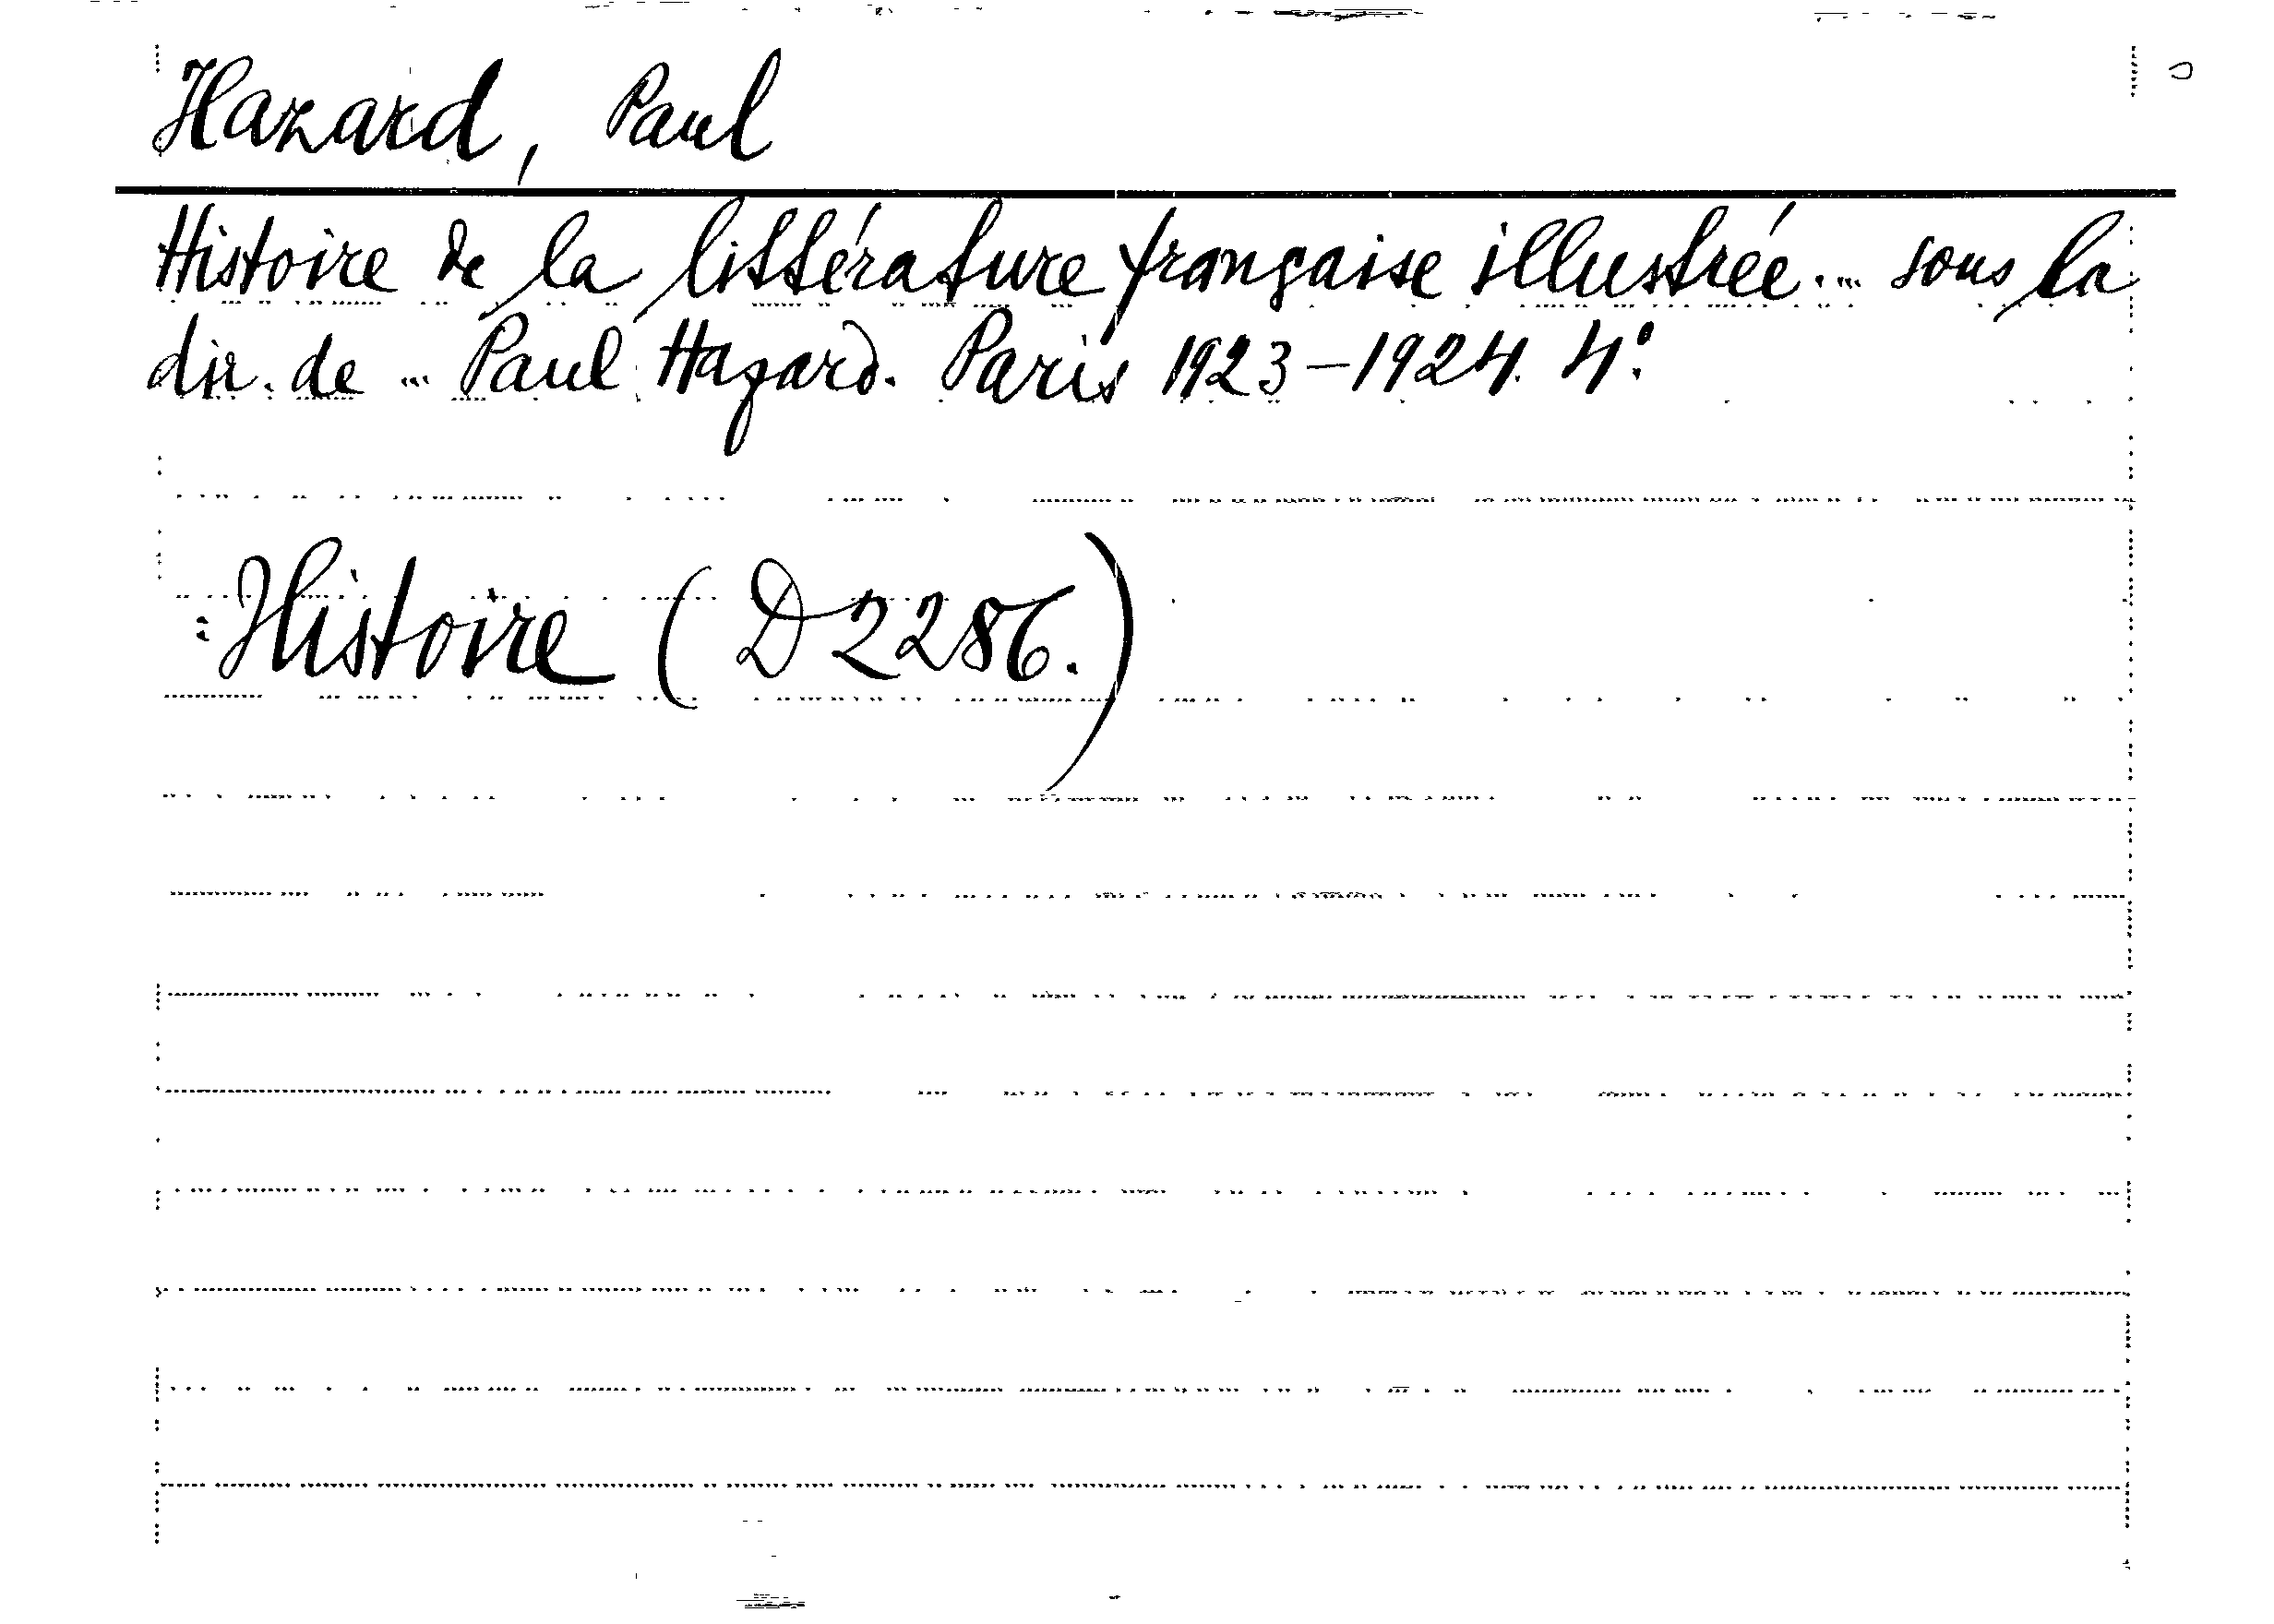 Hazard, Paul
Histoire de la littérature française illustrée... sous la
dir. de ... Paul Hazard. Paris 1923-1924. 4:o
: Histoire (D 2286.)